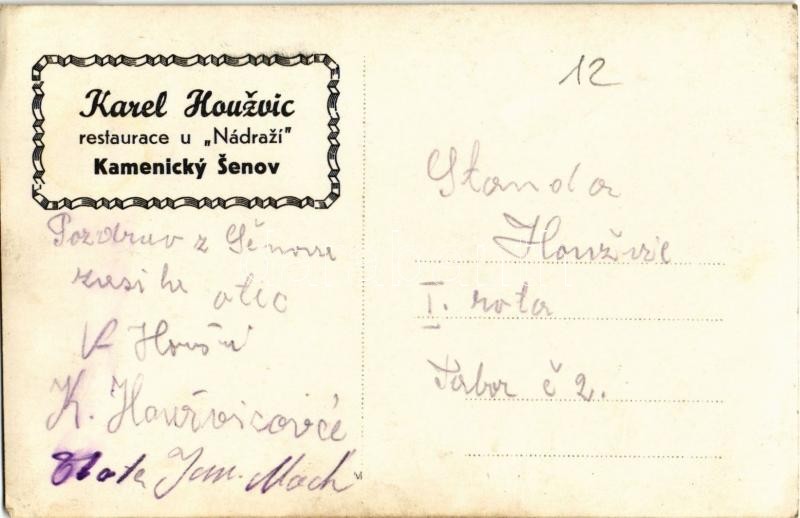 Karel Houžvic
restaurace u „Nádraží"
Kamenický Šenov
Pozdrav z Šenova
zasílá otec
K. Houžvicové
Jan. Mach
12
Standa
Houžvic
I. rota
Tábor č 2.